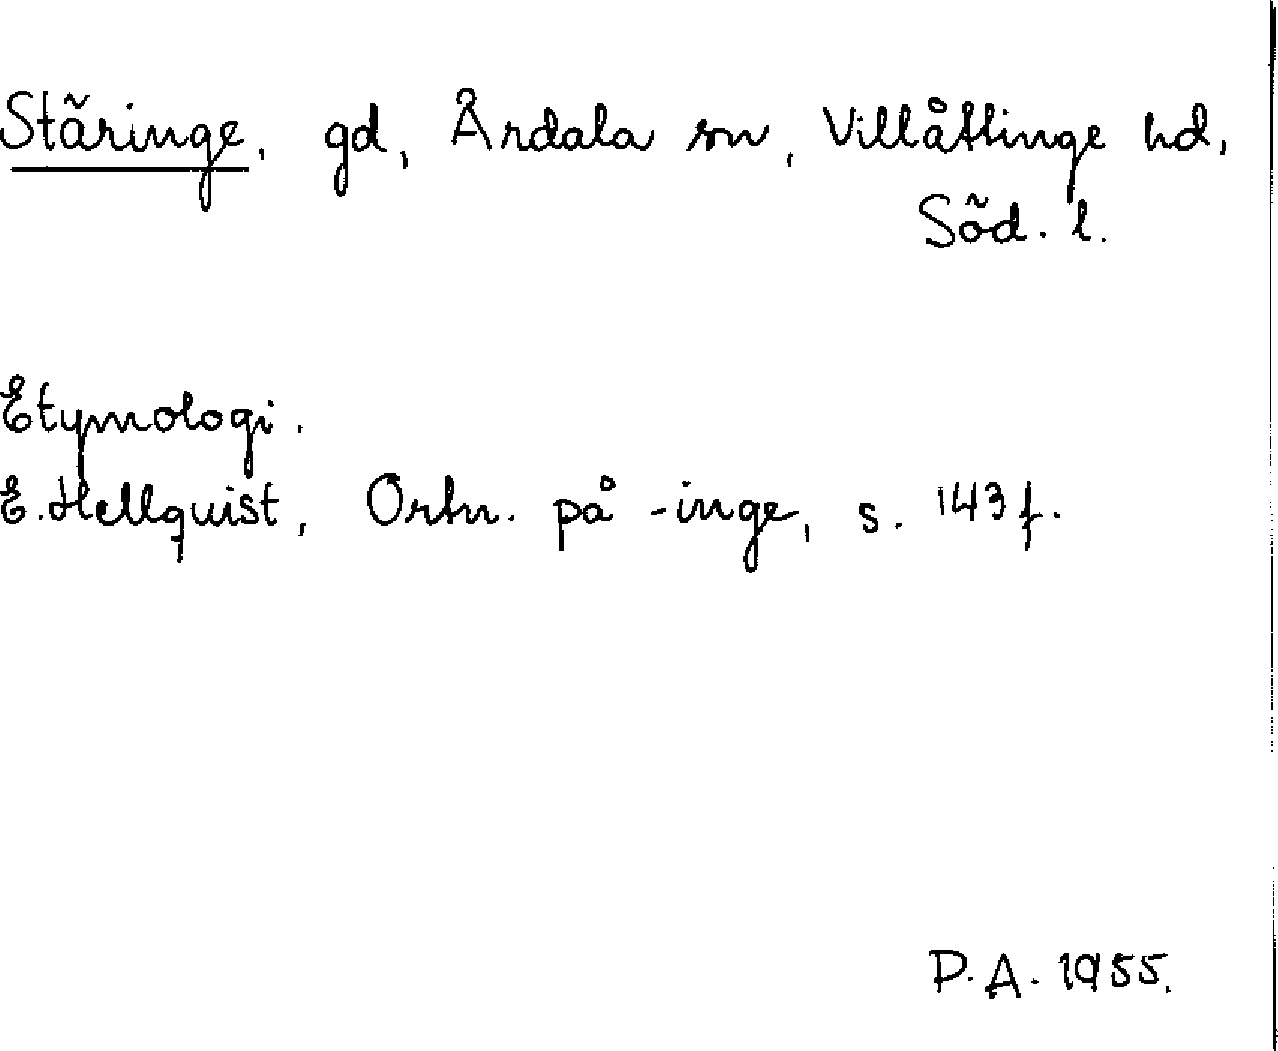 Stäringe, gd, Årdala sn, Villåttinge hd,
Söd. l.
Etymologi.
E. Hellquist, Ortn. på -inge, s. 143 f.
P.A. 1955.